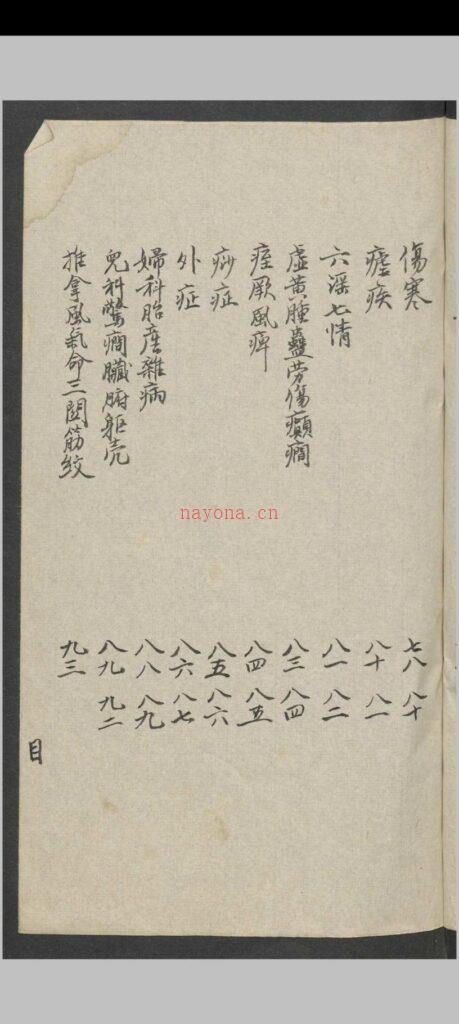 傷寒 七八 八十
瘧疾 八十 八一
六淫七情 八一 八二
虛黃腫蠱勞傷癲癇 八三 八四
痓厥風痺 八四 八五
痧症 八五 八六
外症 八六 八七
婦科胎產雜病 八八 八九
兒科驚癇臟腑軀壳 八九 九二
推拿風氣命三關筋紋 九三
目
nayona.cn